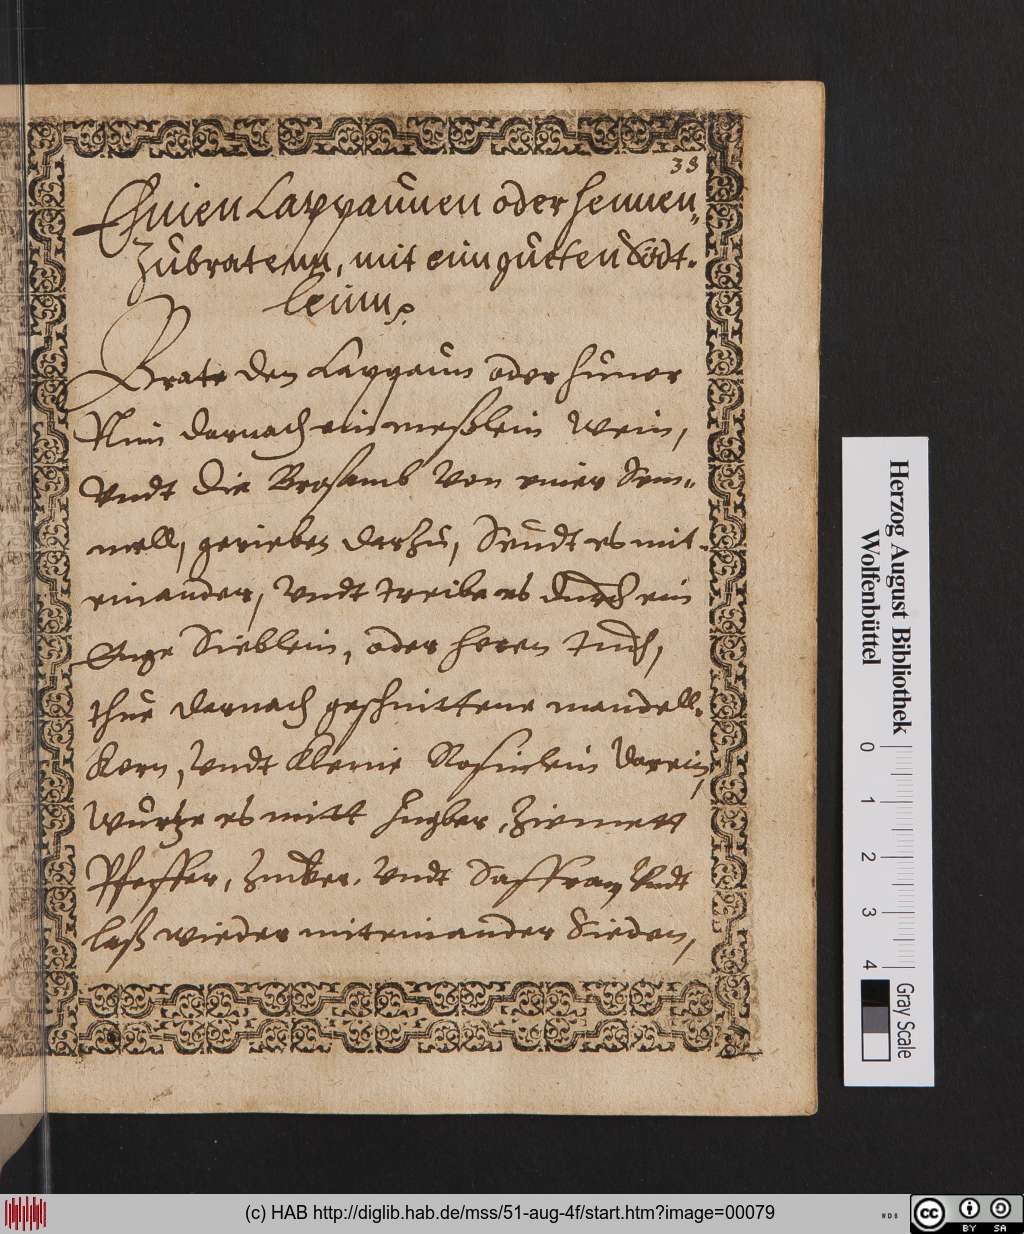 38
Einen Cappaunen oder hennen„
Zubratenn, mit ein gutten Södt-
leinn.
Brate den Cappaun oder hüner
Nim darnach ein meßlein Wein,
Vndt die Brosamb Von einer Sem„
mell, gerieben darzu, Seudt es mit-
einander, Vndt treibe es durch ein
Enge Sieblein, oder heren tuch,
thue darnach geschnittene mandell-
Kern, Vndt Kleine Rosinlein darein,
Würtze es mitt Ingber, Ziemett
Pfeffer, Zucker, Vndt Saffran, Vndt
laß wieder miteinander Sieden,
Herzog August Bibliothek
Wolfenbüttel
0 1 2 3 4
Gray Scale
(c) HAB http://diglib.hab.de/mss/51-aug-4f/start.htm?image=00079
WDB
cc BY SA